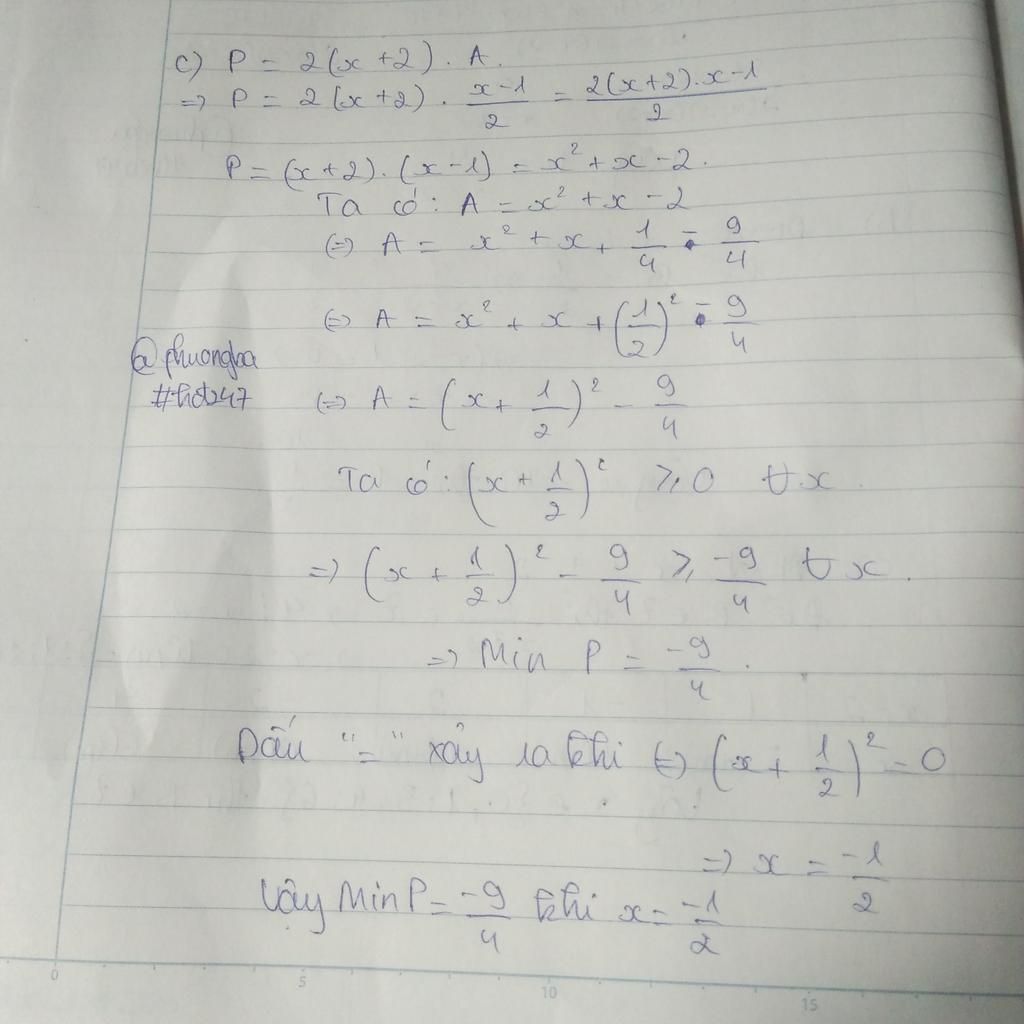 c) P = 2(x+2) . A.
=> P = 2(x+2) . \frac{x-1}{2} = \frac{2(x+2).x-1}{2}
P = (x+2).(x-1) = x² + x - 2.
Ta có: A = x² + x - 2
(=) A = x² + x + \frac{1}{4} - \frac{9}{4}
(=) A = x² + x + (\frac{1}{2})² - \frac{9}{4}
@phuongba
#hd247
(=) A = (x + \frac{1}{2})² - \frac{9}{4}
Ta có: (x + \frac{1}{2})² ⩾ 0 ∀x.
=> (x + \frac{1}{2})² - \frac{9}{4} ⩾ \frac{-9}{4} ∀x.
=> Min P = \frac{-9}{4}.
Dấu "=" xảy ra khi (=) (x + \frac{1}{2})² = 0
=> x = \frac{-1}{2}
Vậy Min P = \frac{-9}{4} khi x = \frac{-1}{2}
0 5 10 15